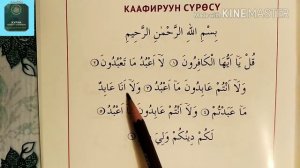 КААФИРУУН СҮРӨСҮ
بِسْمِ اللهِ الرَّحْمٰنِ الرَّحِيمِ
قُلْ يَا اَيُّهَا الْكَافِرُونَ ۝ لَا اَعْبُدُ مَا تَعْبُدُونَ ۝
وَلَا اَنْتُمْ عَابِدُونَ مَا اَعْبُدُ ۝ وَلَا اَنَا عَابِدٌ
مَا عَبَدْتُمْ ۝ وَلَا اَنْتُمْ عَابِدُونَ مَا اَعْبُدُ ۝
لَكُمْ دِينُكُمْ وَلِيَ
KINEMASTER